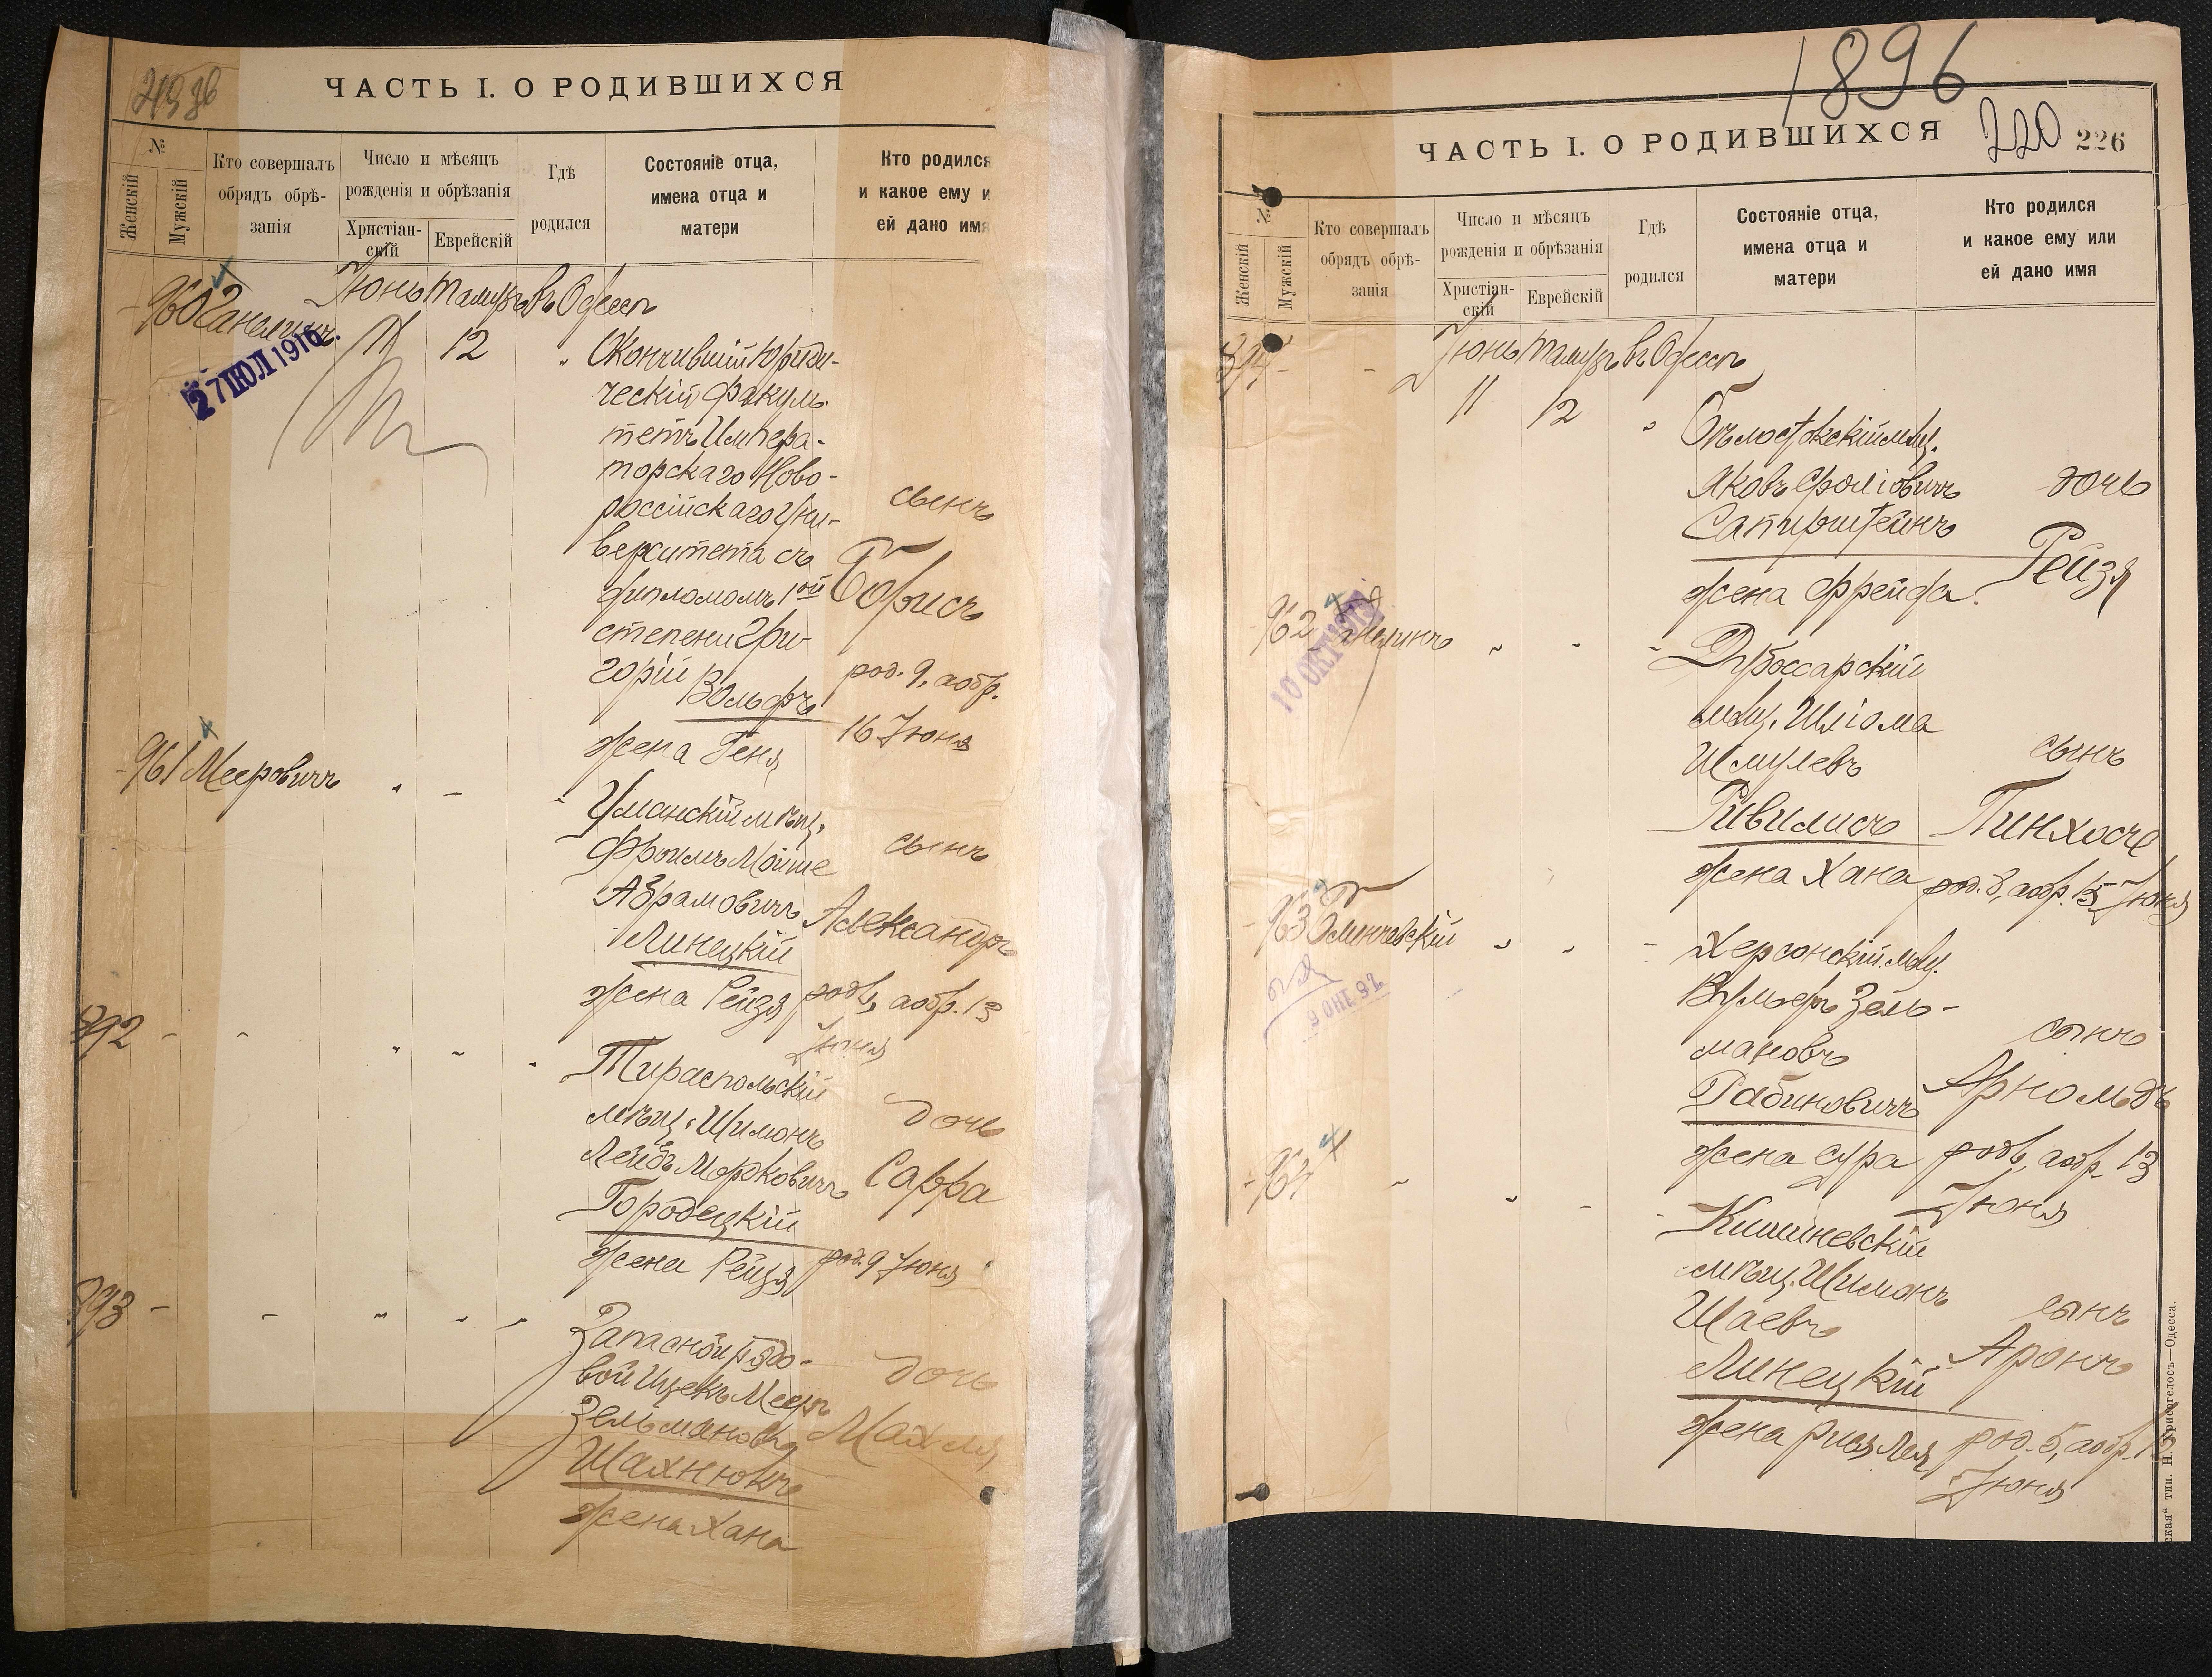 ЧАСТЬ I. О РОДИВШИХСЯ
№
Женскій
Мужскій
Кто совершалъ
обрядъ обрѣ-
занія
Число и мѣсяцъ
рожденія и обрѣзанія
Христіан-
скій
Еврейскій
Гдѣ
родился
Состояніе отца,
имена отца и
матери
Кто родился
и какое ему и
ей дано имя
Іюнь Тамузъ въ Одессѣ
960
27 ІЮЛ 1916.
11 12 " Окончившій Юриди-
ческій Факуль-
тетъ Импера-
торскаго Ново-
россійскаго Уни-
верситета съ
дипломомъ 1ой
степени Гри-
горій Вольфъ
жена Геня
сынъ
Борисъ
род. 9, а обр.
16 Іюня
961 Мееровичъ " - " Уманскій мѣщ.
Фроимъ Мойше
Абрамовичъ
Линецкій
жена Рейзя
сынъ
Александръ
род. 6, а обр. 13
Іюня
892 - - " - " Тираспольскій
мѣщ. Шимонъ
Лейбъ Морковичъ
Городецкій
жена Рейзя
дочь
Сарра
род. 9 Іюня
893 - - " - " Запасной рядо-
вой Ицекъ Мееръ
Зельмановъ
Шахнюкъ
жена Хана
дочь
Махля
1896
ЧАСТЬ I. О РОДИВШИХСЯ
220 226
№
Женскій
Мужскій
Кто совершалъ
обрядъ обрѣ-
занія
Число и мѣсяцъ
рожденія и обрѣзанія
Христіан-
скій
Еврейскій
Гдѣ
родился
Состояніе отца,
имена отца и
матери
Кто родился
и какое ему или
ей дано имя
894 - - Іюнь Тамузъ въ Одессѣ
11 12 " Бѣлостокскій мѣщ.
Яковъ Фроліовичъ
Сапирштейнъ
жена Фрейда
дочь
Рейзя
962 " - - Дубоссарскій
мѣщ. Шліома
Шмулевъ
Ривилисъ
жена Хана
сынъ
Пинхосъ
род. 8, а обр. 15 Іюня
963 " " - Херсонскій мѣщ.
Вульфъ Зель-
мановъ
Рабиновичъ
жена Сура
сынъ
Арнольдъ
род. 6, а обр. 13
Іюня
964 - " - - Кишиневскій
мѣщ. Шимонъ
Шаевъ
Линецкій
жена Рися Лея
сынъ
Аронъ
род. 5, а обр.
Іюня
ская" тип. Н. Хрисогелосъ—Одесса.